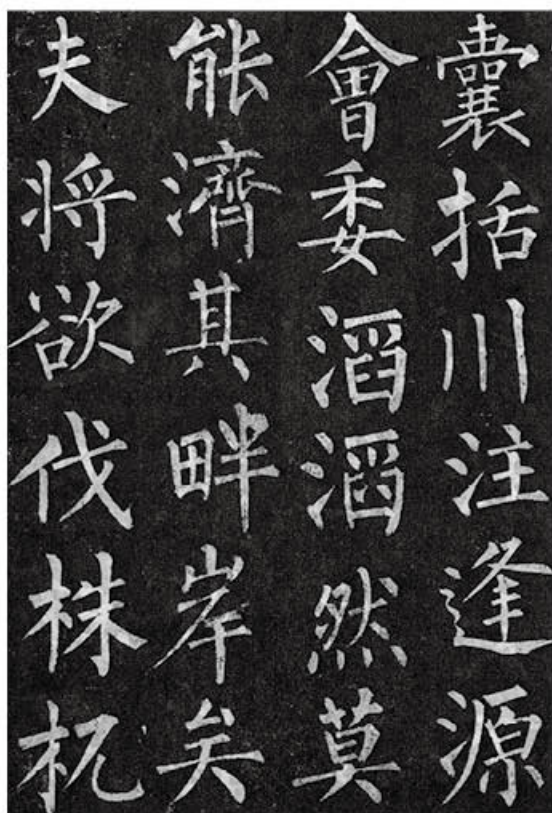 囊括川注逢源
會委滔滔然莫
能濟其畔岸矣
夫將欲伐株杌